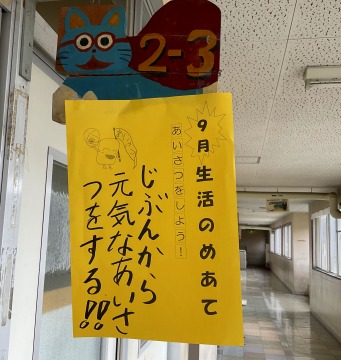 2-3
9月生活のめあて
あいさつをしよう！
じぶんから
元気なあいさ
つをする!!